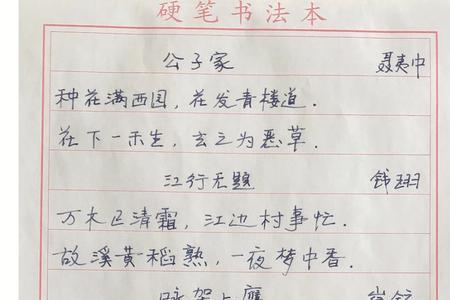 硬笔书法本
公子家 聂夷中
种花满西园，花发青楼道．
花下一禾生，去之为恶草．
江行无题 钱珝
万木已清霜，江边村事忙．
故溪黄稻熟，一夜梦中香．
咏架上鹰 崔铉